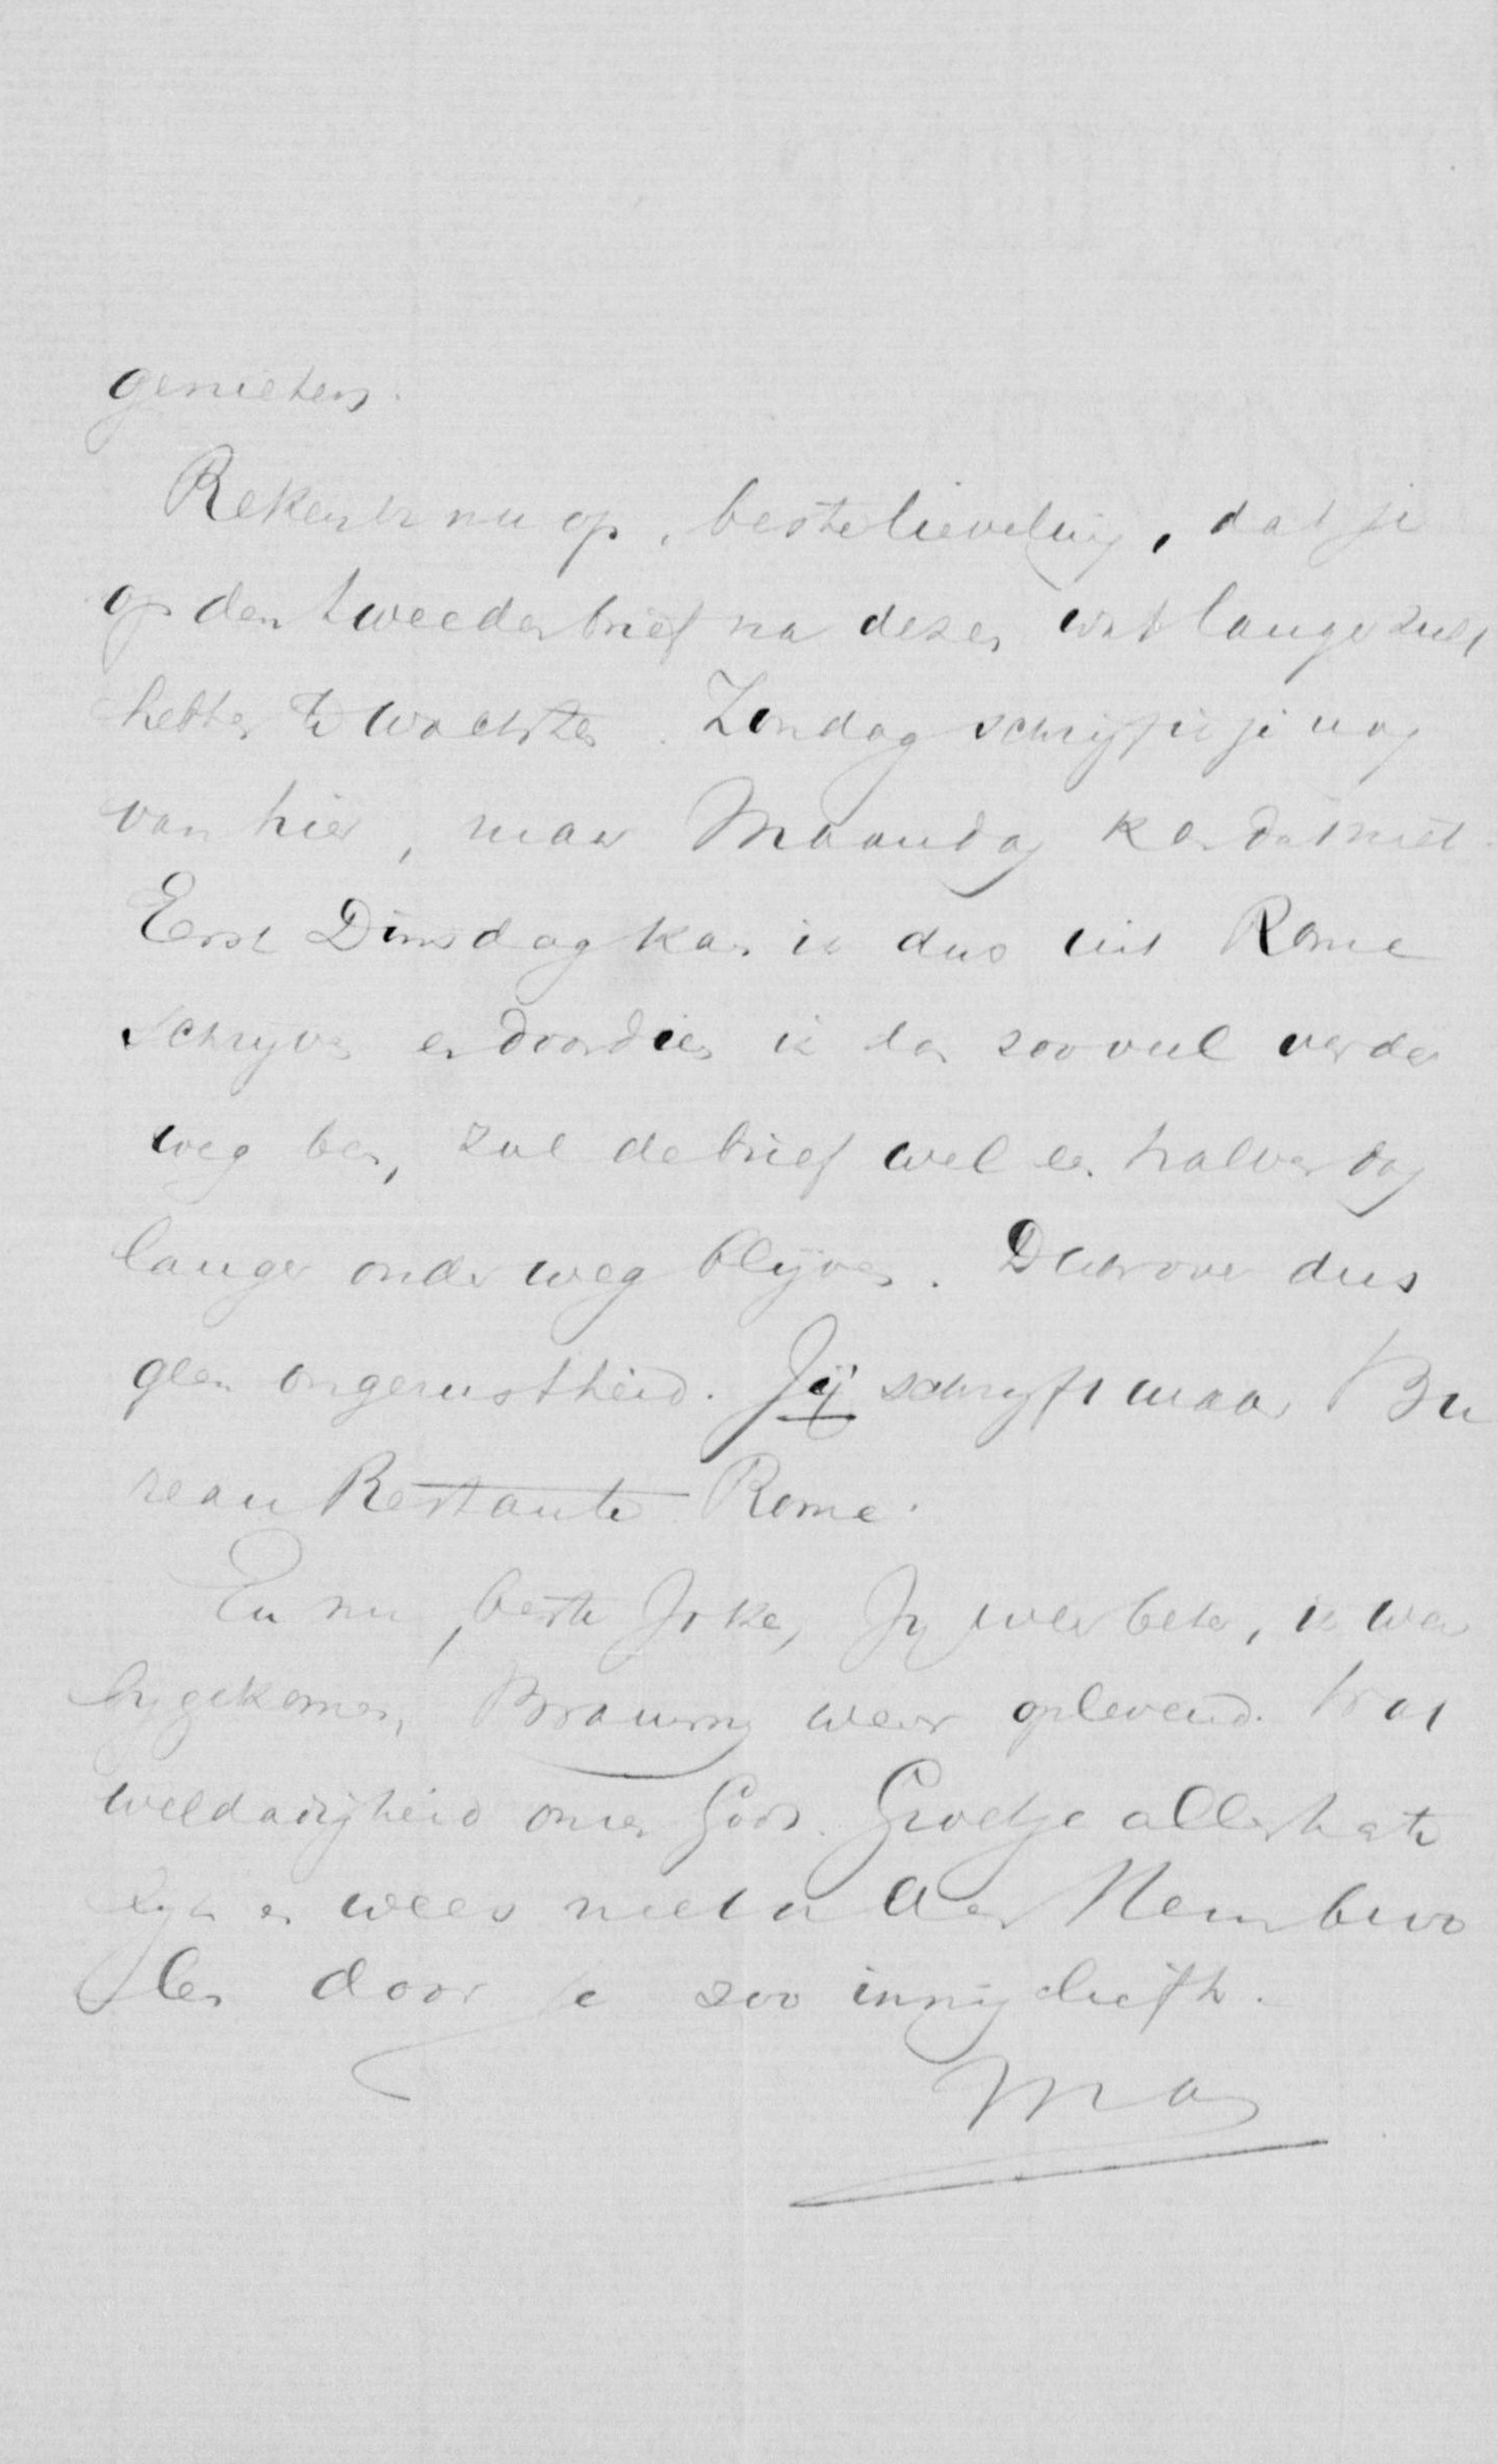 genieten.
Reken er nu op, beste lieveling, dat je
op den tweeden brief na dezen wat langer zult
hebben te wachten. Zondag schrijf ik je nog
van hier, maar Maandag kan dat niet.
Eerst Dinsdag kan ik dus uit Rome
schrijven en doordien ik dan zooveel verder
weg ben, zal de brief wel een halven dag
langer onder weg blijven. Daarover dus
geen ongerustheid. Jij schrijft maar Bu
reau Restante Rome.
En nu, beste Joke, Jij weer beter, ik weer
bijgekomen, weer oplevend. Wat
weldadigheid onzes Gods. Groet je allerhart
en wees met a aan Hem bevo
len door je zoo innig liefh.